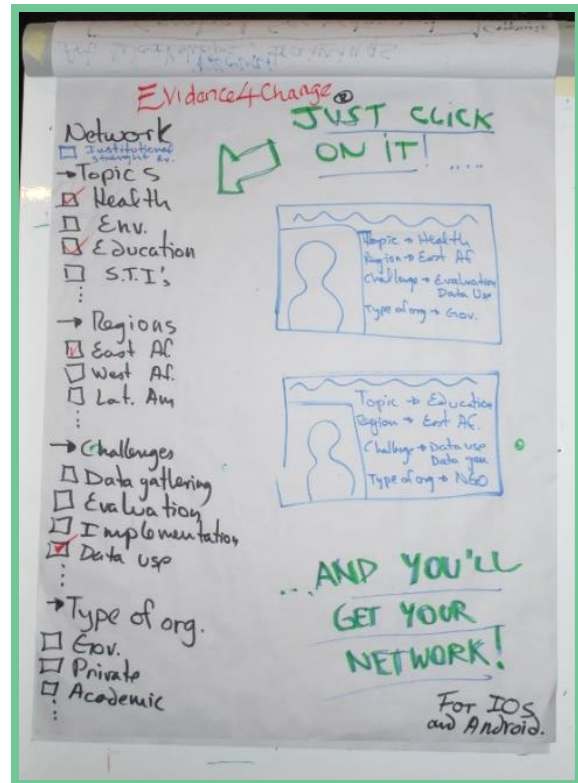 Evidence4Change
Network
Institutional
→Topics
Health
Env.
Education
S.T.I's
→ Regions
East Af.
West Af.
Lat. Am
→ Challenges
Data gathering
Evaluation
Implementation
Data use
→Type of org.
Gov.
Private
Academic
JUST CLICK
ON IT! .....
Topic → Health
Region → East Af.
Challenge → Evaluation
Data Use
Type of org → Gov.
Topic → Education
Region → East Af.
Challenge → Data use
Data
Type of org → NGO
...AND YOU'LL
GET YOUR
NETWORK!
For IOS
and Android.